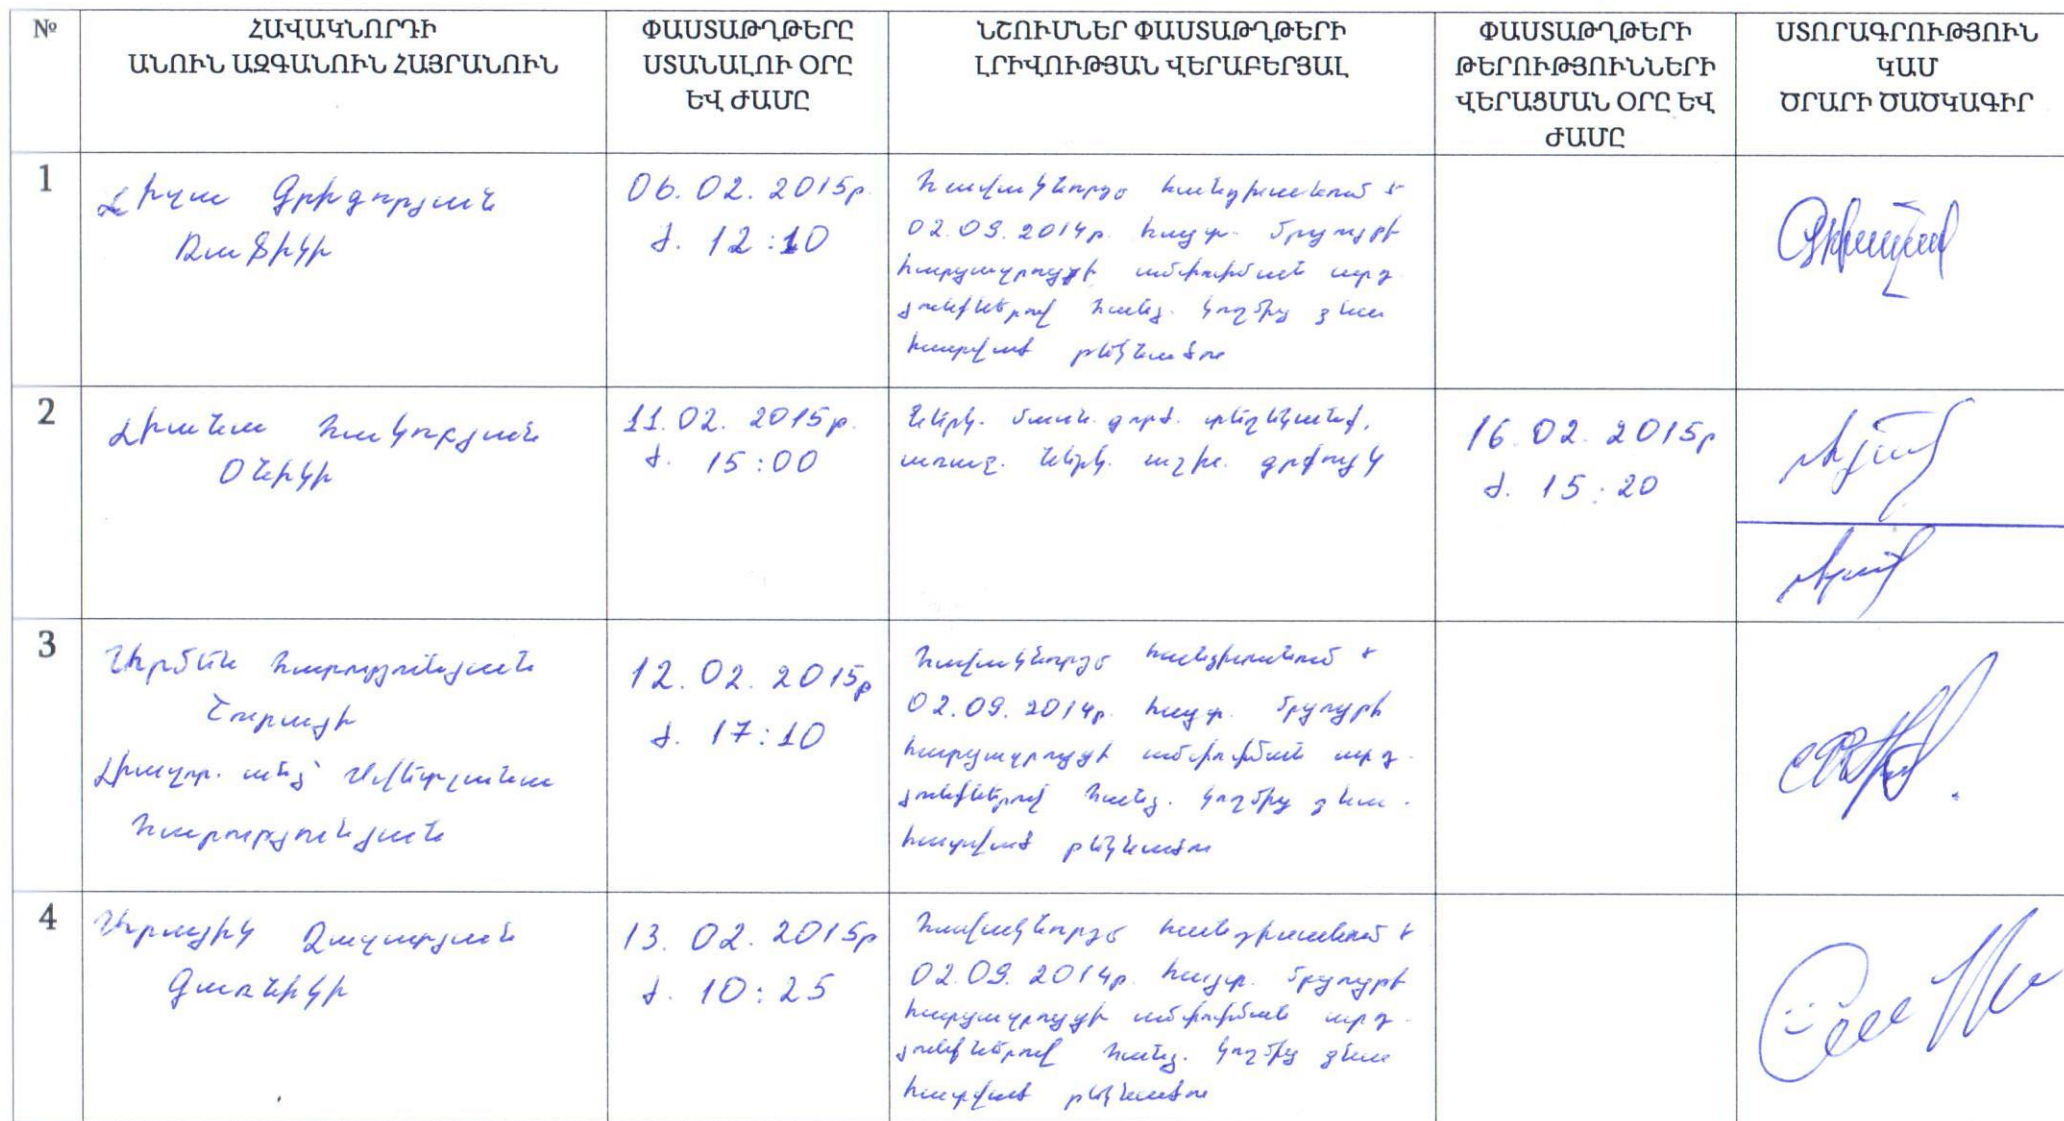 №
ՀԱՎԱԿՆՈՐԴԻ
ԱՆՈՒՆ ԱԶԳԱՆՈՒՆ ՀԱՅՐԱՆՈՒՆ
ՓԱՍՏԱԹՂԹԵՐԸ
ՍՏԱՆԱԼՈՒ ՕՐԸ
ԵՎ ԺԱՄԸ
ՆՇՈՒՄՆԵՐ ՓԱՍՏԱԹՂԹԵՐԻ
ԼՐԻՎՈՒԹՅԱՆ ՎԵՐԱԲԵՐՅԱԼ
ՓԱՍՏԱԹՂԹԵՐԻ
ԹԵՐՈՒԹՅՈՒՆՆԵՐԻ
ՎԵՐԱՑՄԱՆ ՕՐԸ ԵՎ
ԺԱՄԸ
ՍՏՈՐԱԳՐՈՒԹՅՈՒՆ
ԿԱՄ
ԾՐԱՐԻ ԾԱԾԿԱԳԻՐ
1
Լիլյա Գրիգորյան
Ռաֆիկի
06.02.2015թ.
ժ. 12:10
Հավակնորդը հանդիսանում է
02.09.2014թ. հայտ. մրցույթի
հարցազրույցի ամփոփման արդ
յունքներով հանձ. կողմից գնա
հատված թեկնածու
2
Լիանա Հակոբյան
Օնիկի
11.02.2015թ.
ժ. 15:00
Ներկ. մասն. գործ. տեղեկանք,
առաջ. ներկ. աշխ. գրքույկ
16.02.2015թ
ժ. 15:20
3
Արմեն Հարությունյան
Շուրայի
Լիազոր. անձ՝ Սվետլանա
Հարությունյան
12.02.2015թ
ժ. 17:10
Հավակնորդը հանդիսանում է
02.09.2014թ. հայտ. մրցույթի
հարցազրույցի ամփոփման արդ-
յունքներով հանձ. կողմից գնա-
հատված թեկնածու
4
Արայիկ Ղազարյան
Գառնիկի
13.02.2015թ
ժ. 10:25
Հավակնորդը հանդիսանում է
02.09.2014թ. հայտ. մրցույթի
հարցազրույցի ամփոփման արդ-
յունքներով հանձ. կողմից գնա
հատված թեկնածու